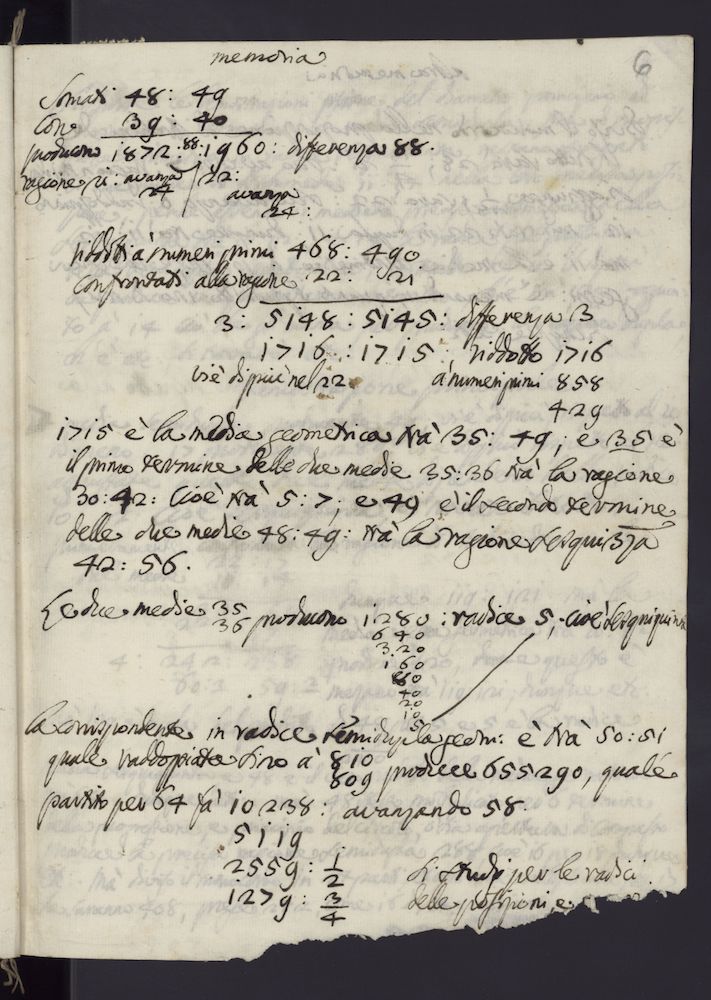 memoria
6
Somati 48: 49
Con 39: 40
producono 1872: 88: 1960: differenza 88.
ragione 21: avanza / 22:
24 avanza
24:
ridotti a numeri primi 468: 490
confrontati alla ragione 22: 21
3: 5148: 5145: differenza 3
1716: 1715, ridotto 1716
vi è di più nel 22 a numeri primi 858
429
1715 è la media geometrica trà 35: 49; e 35 è
il primo termine delle due medie 35:36 trà la ragione
30:42: Cioè trà 5:7; e 49 è il secondo termine
delle due medie 48:49: trà la ragione sesqui3za
42: 56.
Le due medie 35 producono 1280: radice 5, cioè sesquiquinta
36
640
320
160
80
40
20
10
5
la corrispondente in radice geom: è trà 50:51
quale raddoppiata sino à 810
809 produce 655290, quale
partito per 64 fà 10238: avanzando 58.
5119
2559: 1/2
1279: 3/4
Si studj per le radici
delle posizioni, e